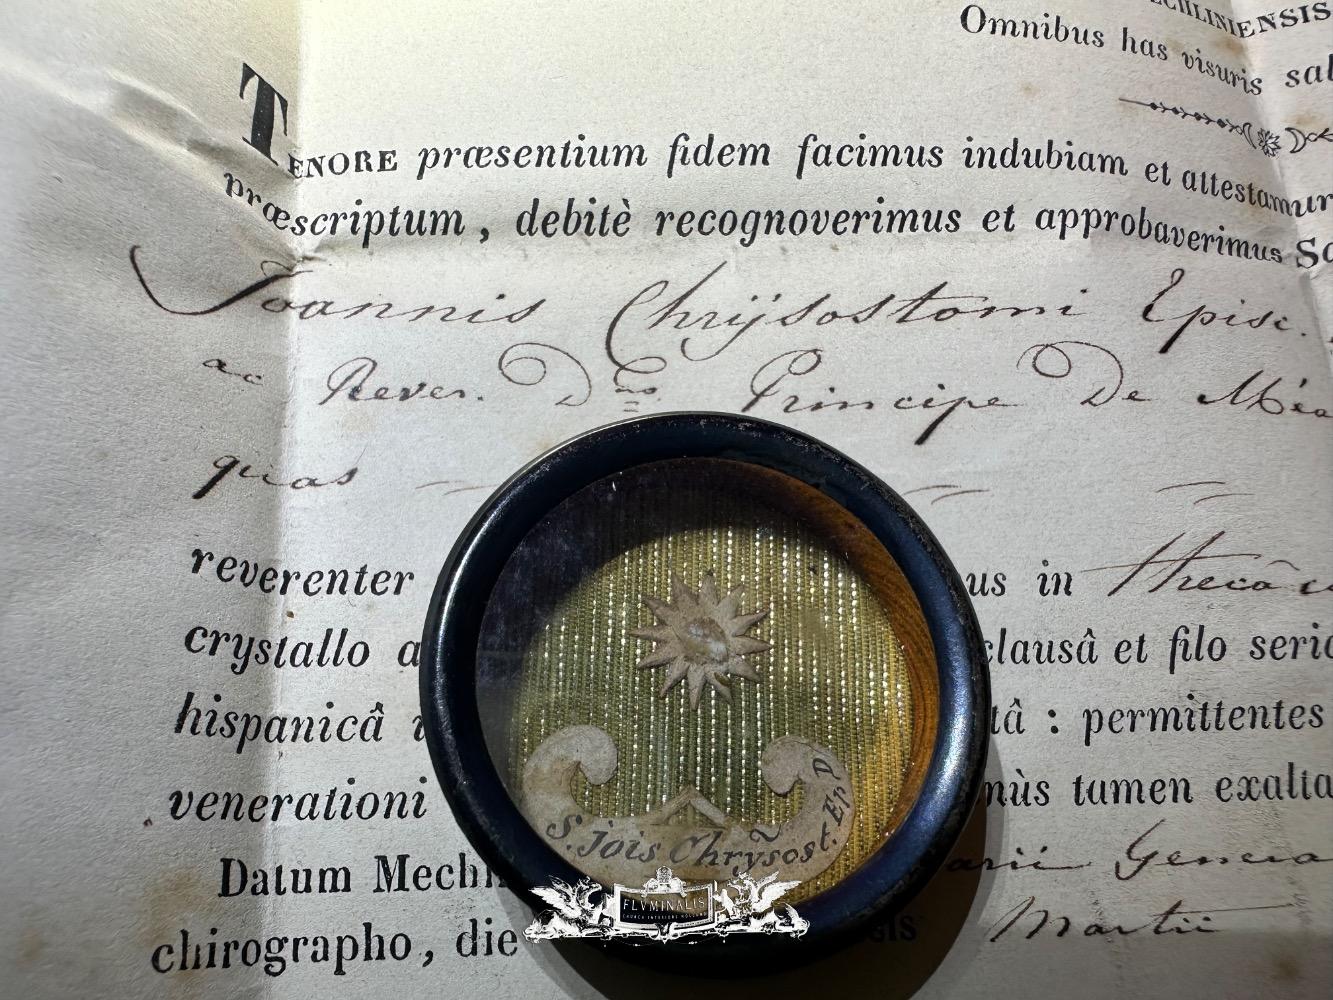 MECHLINIENSIS
Omnibus has visuris sal
TENORE præsentium fidem facimus indubiam et attestamur
præscriptum, debitè recognoverimus et approbaverimus Sa
Joannis Chrÿsostomi Episc.
ac Rever. Dno. Principe De Méa
quas
reverenter us in thecâ
crystallo a clausâ et filo seric
hispanicâ tâ : permittentes
venerationi nùs tamen exalta
arii Genera
Datum Mechl
Martii
chirographo, die sis
S. Jois Chrysost. Ep D
FLVMINALIS
CHURCH INTERIORS HOLLAND